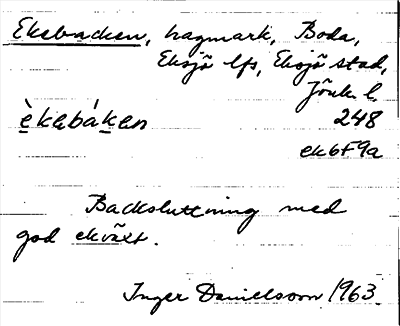 Ekebacken, hagmark, Boda,
Eksjö lfs, Eksjö stad,
Jönk. l.
èkebáken 248
ek6F9a
Backsluttning med
god ekväxt.
Inger Danielsson 1963.